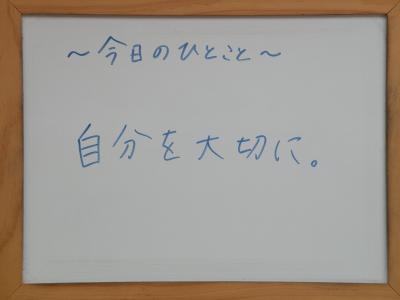 ～今日のひとこと～
自分を大切に。